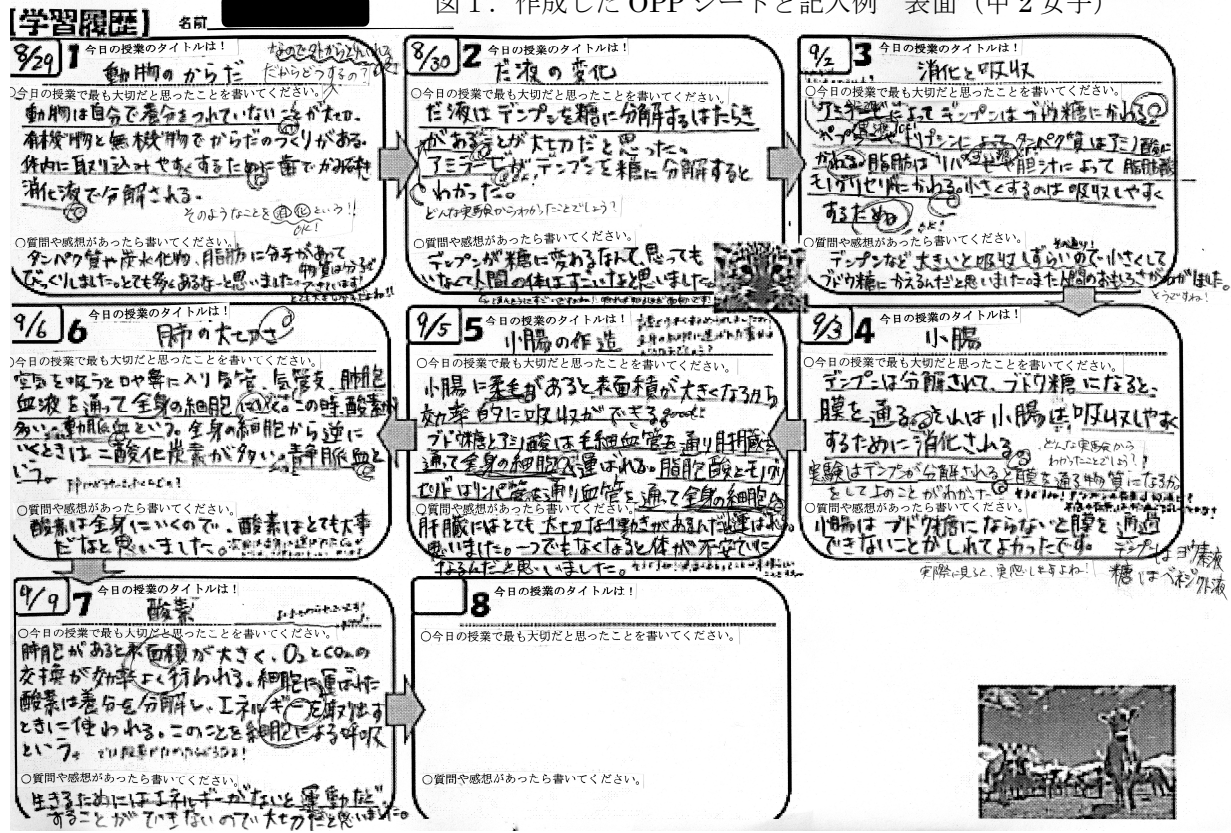 図1．作成したOPPシートと記入例　表面（中2女子）
【学習履歴】 名前
8/29 1 今日の授業のタイトルは！
動物のからだ
なので外からとり入れる
だからどうするの？
○今日の授業で最も大切だと思ったことを書いてください。
動物は自分で養分をつくれていないことが大切。
有機物と無機物でからだのつくりがある。
体内に取り込みやすくするために歯でかみくだき
消化液で分解される。
そのようなことを消化という!!
OK!
○質問や感想があったら書いてください。
タンパク質や炭水化物、脂肪に分子があって
びっくりしました。とても多くあるなーと思いました。
8/30 2 今日の授業のタイトルは！
だ液の変化
○今日の授業で最も大切だと思ったことを書いてください。
だ液はデンプンを糖に分解するはたらき
があることが大切だと思った。
アミラーゼが、デンプンを糖に分解すると
わかった。
どんな実験からわかったことでしょう？
○質問や感想があったら書いてください。
デンプンが糖に変わるなんて、思っても
いなくて人間の体はすごいなと思いました。
9/2 3 今日の授業のタイトルは！
消化と吸収
○今日の授業で最も大切だと思ったことを書いてください。
アミラーゼによってデンプンはブドウ糖にかわる。
ペプシン、トリプシンによってタンパク質はアミノ酸に
かわる。脂肪はリパーゼや胆汁によって脂肪酸
モノグリセリドにかわる。小さくするのは吸収しやすく
するため。
OK!
○質問や感想があったら書いてください。
デンプンなど大きいと吸収しずらいので小さくして
ブドウ糖にかえるんだと思いました。また人間のおもしろさがわかりました。
そうですね！
9/3 4 今日の授業のタイトルは！
小腸
○今日の授業で最も大切だと思ったことを書いてください。
デンプンは分解されて、ブドウ糖になると、
膜を通る。それは小腸は吸収しやすく
するために消化される。
どんな実験から
わかったことでしょう？
実験はデンプンが分解されると膜を通る物質になるか。
をして上のことがわかった。
○質問や感想があったら書いてください。
小腸はブドウ糖にならないと膜を通過
できないことがしれてよかったです。
デンプンはヨウ素液
糖はベネジクト液
実際に見ると、実感しますよね！
9/5 5 今日の授業のタイトルは！
小腸の作造
○今日の授業で最も大切だと思ったことを書いてください。
小腸に柔毛があると表面積が大きくなるから
効率的に吸収ができる。good!!
ブドウ糖とアミノ酸は毛細血管を通り肝臓を
通って全身の細胞へ運ばれる。脂肪酸とモノグリ
セリドはリンパ管を通り血管を通って全身の細胞へ
運ばれる。
○質問や感想があったら書いてください。
肝臓にはとても大切な働きがあるんだと
思いました。一つでもなくなると体が不安定に
なるんだと思いました。
9/6 6 今日の授業のタイトルは！
肺の大切さ
○今日の授業で最も大切だと思ったことを書いてください。
空気を吸うと口や鼻に入り気管、気管支、肺胞
血液を通って全身の細胞にいく。この時、酸素が
多い。動脈血という。全身の細胞から逆に
いくときは二酸化炭素が多い。静脈血と
いう。
○質問や感想があったら書いてください。
酸素は全身にいくので、酸素はとても大事
だなと思いました。
9/9 7 今日の授業のタイトルは！
酸素
○今日の授業で最も大切だと思ったことを書いてください。
肺胞があると表面積が大きく、O₂とCO₂の
交換が効率よく行われる。細胞に運ばれた
酸素は養分を分解し、エネルギーを取り出す
ときに使われる。このことを細胞による呼吸
という。
○質問や感想があったら書いてください。
生きるためにはエネルギーがないと運動など
することができないので大切だと思いました。
8 今日の授業のタイトルは！
○今日の授業で最も大切だと思ったことを書いてください。
○質問や感想があったら書いてください。